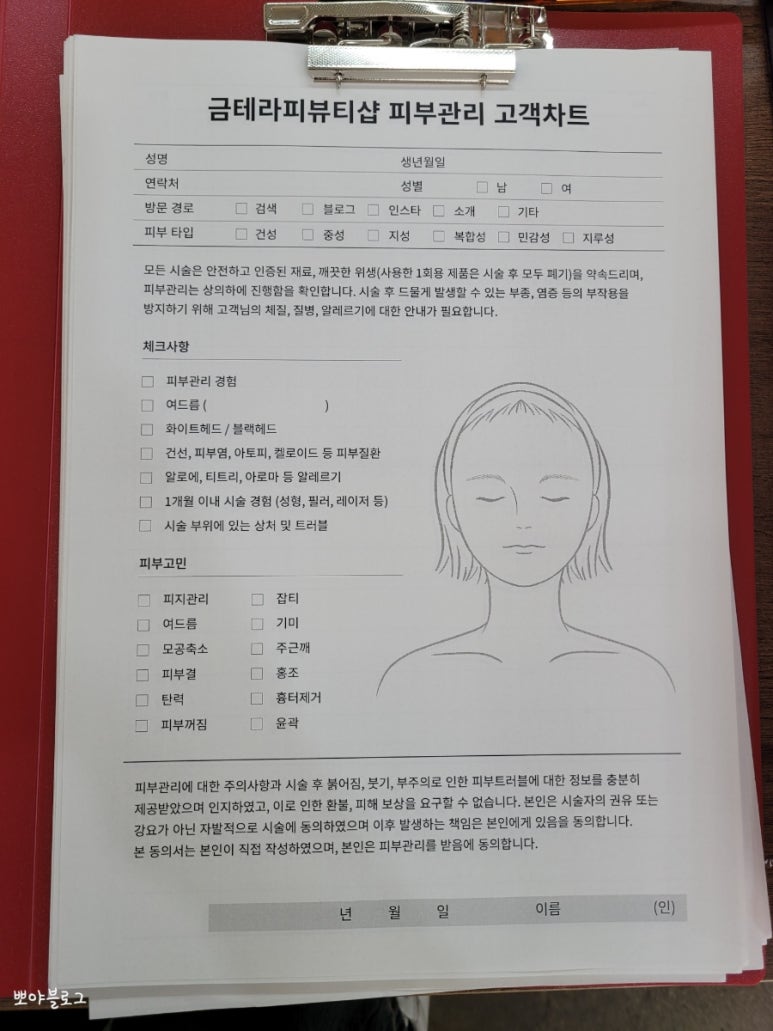 금테라피뷰티샵 피부관리 고객차트
성명 생년월일
연락처 성별 □ 남 □ 여
방문 경로 □ 검색 □ 블로그 □ 인스타 □ 소개 □ 기타
피부 타입 □ 건성 □ 중성 □ 지성 □ 복합성 □ 민감성 □ 지루성
모든 시술은 안전하고 인증된 재료, 깨끗한 위생(사용한 1회용 제품은 시술 후 모두 폐기)을 약속드리며,
피부관리는 상의하에 진행함을 확인합니다. 시술 후 드물게 발생할 수 있는 부종, 염증 등의 부작용을
방지하기 위해 고객님의 체질, 질병, 알레르기에 대한 안내가 필요합니다.
체크사항
□ 피부관리 경험
□ 여드름 ( )
□ 화이트헤드 / 블랙헤드
□ 건선, 피부염, 아토피, 켈로이드 등 피부질환
□ 알로에, 티트리, 아로마 등 알레르기
□ 1개월 이내 시술 경험 (성형, 필러, 레이저 등)
□ 시술 부위에 있는 상처 및 트러블
피부고민
□ 피지관리 □ 잡티
□ 여드름 □ 기미
□ 모공축소 □ 주근깨
□ 피부결 □ 홍조
□ 탄력 □ 흉터제거
□ 피부꺼짐 □ 윤곽
피부관리에 대한 주의사항과 시술 후 붉어짐, 붓기, 부주의로 인한 피부트러블에 대한 정보를 충분히
제공받았으며 인지하였고, 이로 인한 환불, 피해 보상을 요구할 수 없습니다. 본인은 시술자의 권유 또는
강요가 아닌 자발적으로 시술에 동의하였으며 이후 발생하는 책임은 본인에게 있음을 동의합니다.
본 동의서는 본인이 직접 작성하였으며, 본인은 피부관리를 받음에 동의합니다.
년 월 일 이름 (인)
뽀야블로그